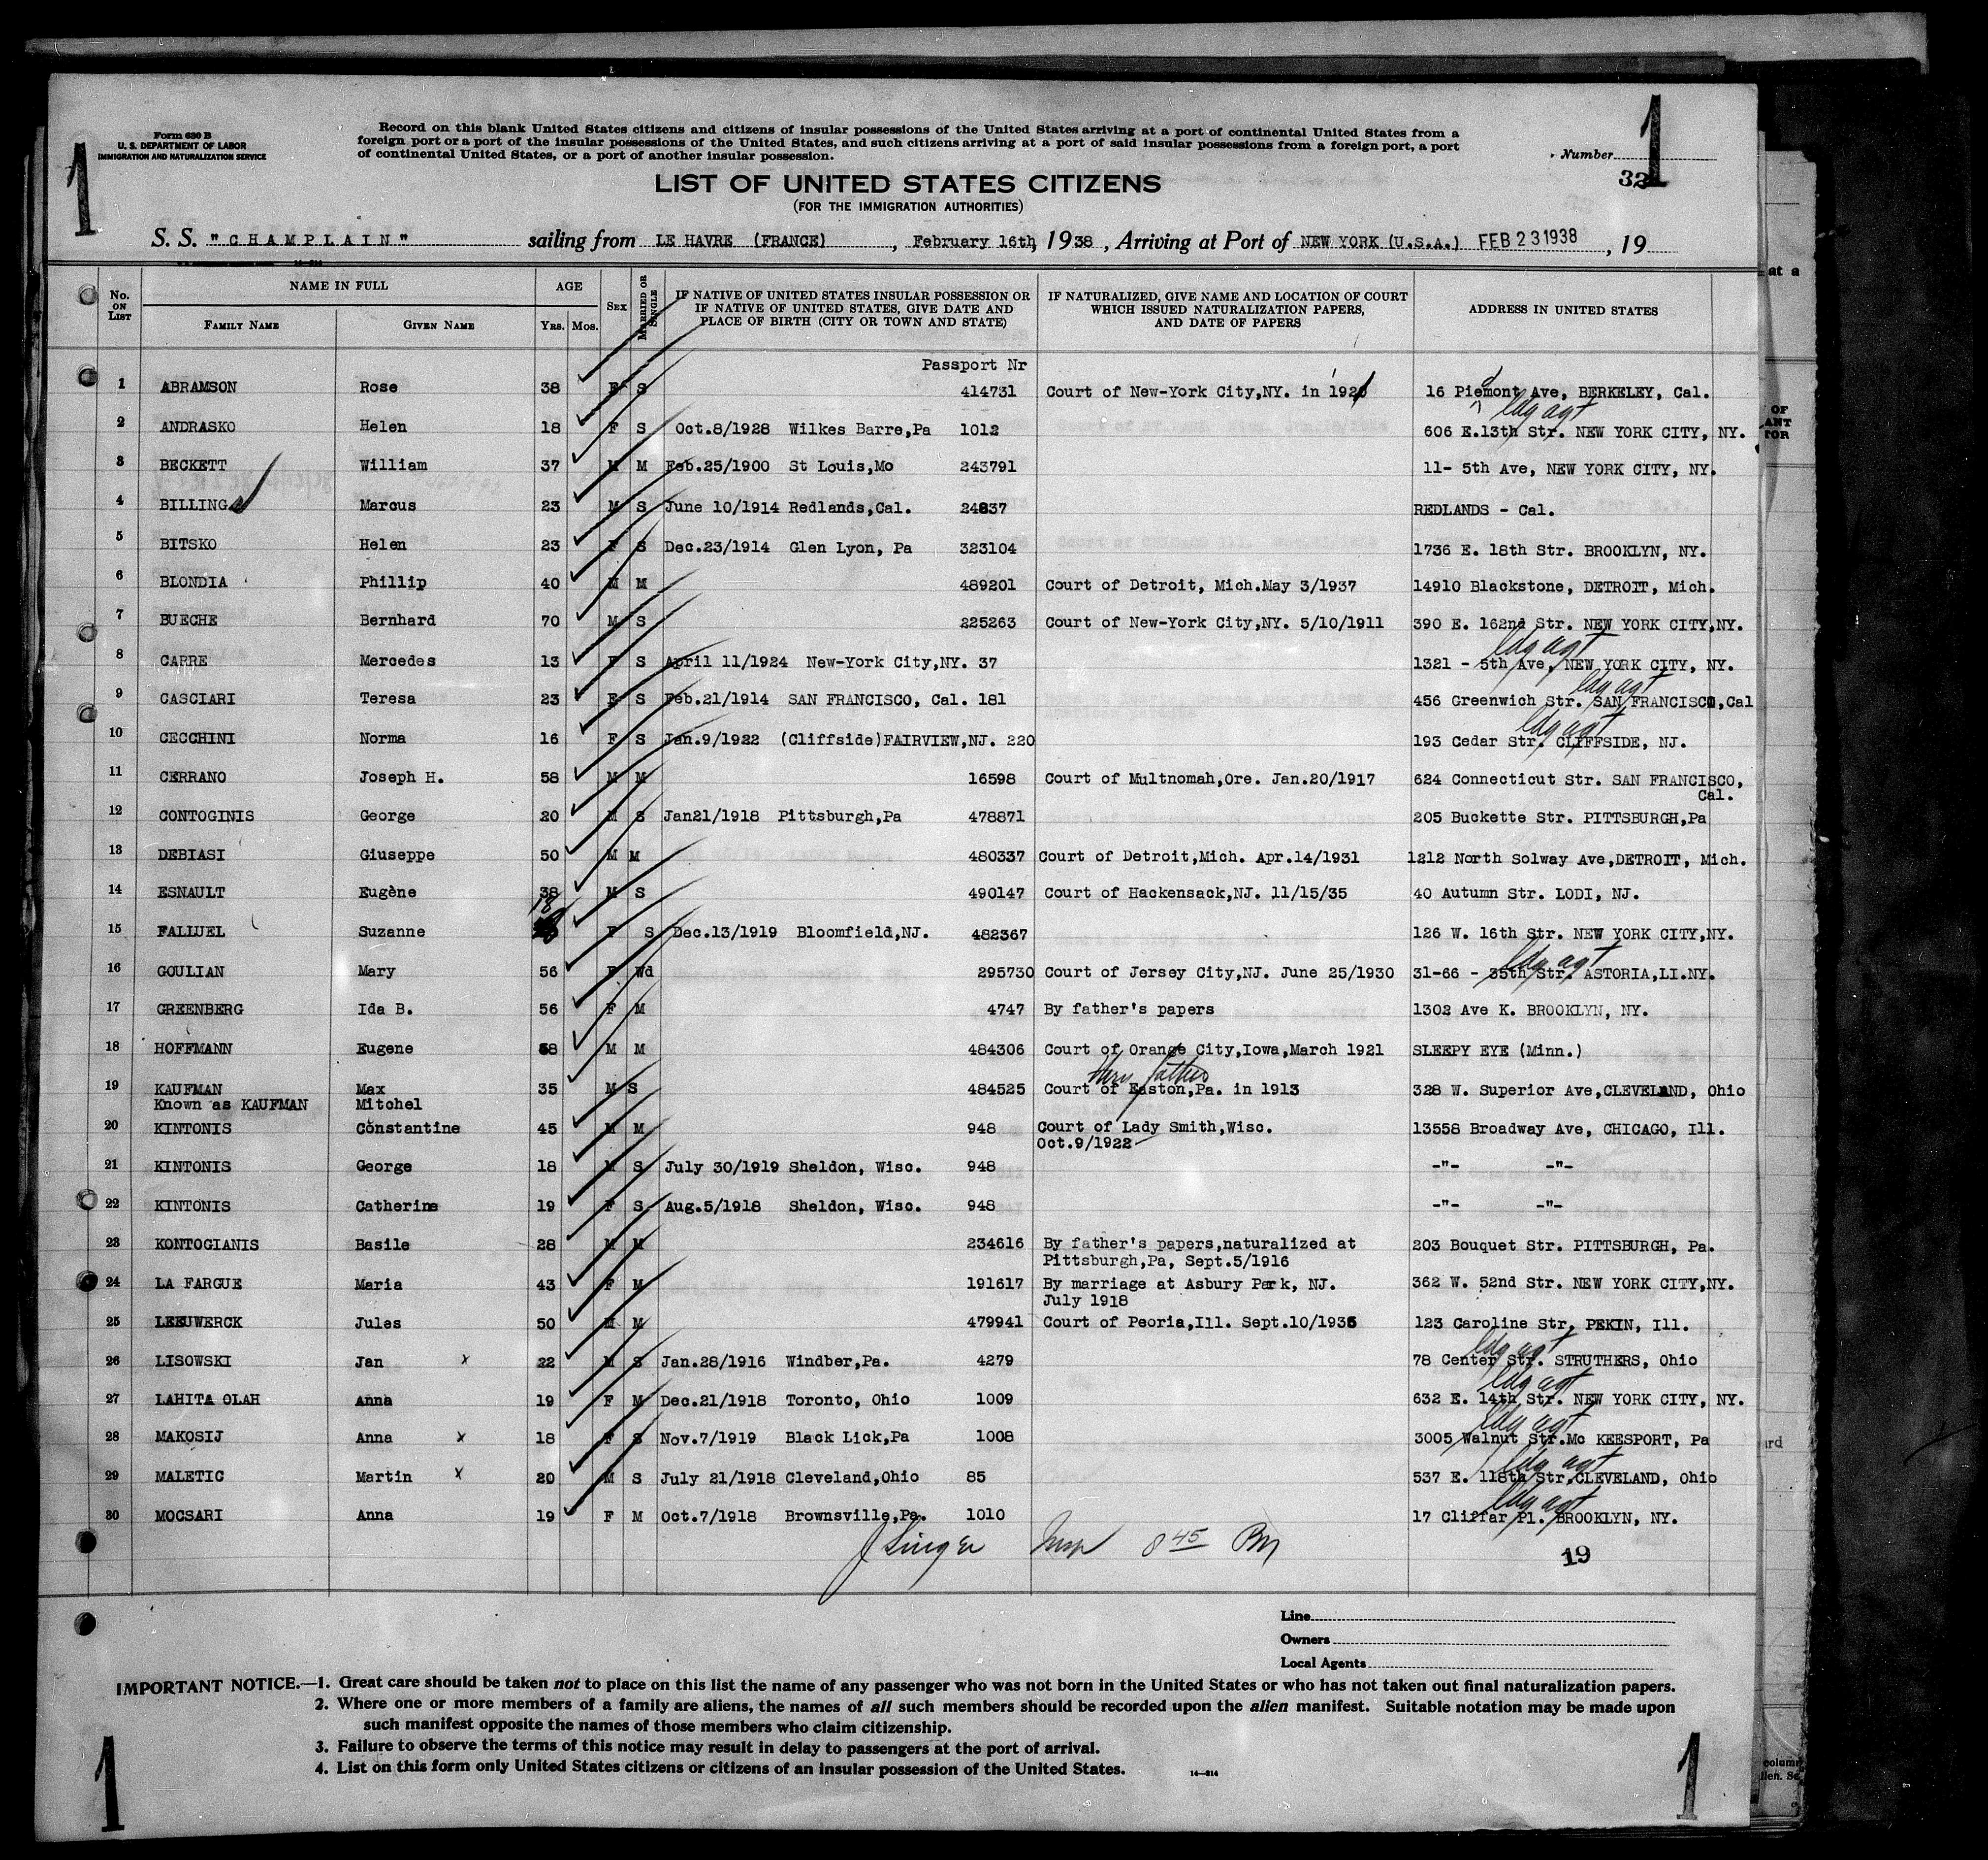 Form 630 B
U. S. DEPARTMENT OF LABOR
IMMIGRATION AND NATURALIZATION SERVICE
Record on this blank United States citizens and citizens of insular possessions of the United States arriving at a port of continental United States from a
foreign port or a port of the insular possessions of the United States, and such citizens arriving at a port of said insular possessions from a foreign port, a port
of continental United States, or a port of another insular possession.
1
1
Number
32
LIST OF UNITED STATES CITIZENS
(FOR THE IMMIGRATION AUTHORITIES)
S. S. "CHAMPLAIN" sailing from LE HAVRE (FRANCE), February 16th, 1938, Arriving at Port of NEW YORK (U.S.A.) FEB 23 1938, 19
No. ON LIST NAME IN FULL FAMILY NAME GIVEN NAME AGE YRS. MOS. SEX MARRIED OR SINGLE
IF NATIVE OF UNITED STATES INSULAR POSSESSION OR IF NATIVE OF UNITED STATES, GIVE DATE AND PLACE OF BIRTH (CITY OR TOWN AND STATE)
IF NATURALIZED, GIVE NAME AND LOCATION OF COURT WHICH ISSUED NATURALIZATION PAPERS, AND DATE OF PAPERS
ADDRESS IN UNITED STATES
Passport Nr
1 ABRAMSON Rose 38 F S 414731 Court of New-York City,NY. in 1921 16 Piedmont Ave, BERKELEY, Cal.
ldg agt
2 ANDRASKO Helen 18 F S Oct.8/1928 Wilkes Barre,Pa 1012 606 E.13th Str. NEW YORK CITY, NY.
3 BECKETT William 37 M M Feb.25/1900 St Louis,Mo 243791 11- 5th Ave, NEW YORK CITY, NY.
4 BILLING Marcus 23 M S June 10/1914 Redlands,Cal. 24837 REDLANDS - Cal.
5 BITSKO Helen 23 F S Dec.23/1914 Glen Lyon, Pa 323104 1736 E. 18th Str. BROOKLYN, NY.
6 BLONDIA Phillip 40 M M 489201 Court of Detroit, Mich.May 3/1937 14910 Blackstone, DETROIT, Mich.
7 BUECHE Bernhard 70 M S 225263 Court of New-York City,NY. 5/10/1911 390 E. 162nd Str. NEW YORK CITY,NY.
ldg agt
8 CARRE Mercedes 13 F S April 11/1924 New-York City,NY. 37 1321 - 5th Ave, NEW YORK CITY, NY.
ldg agt
9 CASCIARI Teresa 23 F S Feb.21/1914 SAN FRANCISCO, Cal. 181 456 Greenwich Str. SAN FRANCISCO,Cal
ldg agt
10 CECCHINI Norma 16 F S Jan.9/1922 (Cliffside)FAIRVIEW,NJ. 220 193 Cedar Str. CLIFFSIDE, NJ.
11 CERRANO Joseph H. 58 M M 16598 Court of Multnomah,Ore. Jan.20/1917 624 Connecticut Str. SAN FRANCISCO,
Cal.
12 CONTOGINIS George 20 M S Jan21/1918 Pittsburgh,Pa 478871 205 Buckette Str. PITTSBURGH,Pa
13 DEBIASI Giuseppe 50 M M 480337 Court of Detroit,Mich. Apr.14/1931 1212 North Solway Ave,DETROIT, Mich.
14 ESNAULT Eugène 38 M S 490147 Court of Hackensack,NJ. 11/15/35 40 Autumn Str. LODI, NJ.
15 FALLUEL Suzanne 18 F S Dec.13/1919 Bloomfield,NJ. 482367 126 W. 16th Str. NEW YORK CITY,NY.
ldg agt
16 GOULIAN Mary 56 F Wd 295730 Court of Jersey City,NJ. June 25/1930 31-66 - 35th Str. ASTORIA,LI.NY.
17 GREENBERG Ida B. 56 F M 4747 By father's papers 1302 Ave K. BROOKLYN, NY.
18 HOFFMANN Eugene 58 M M 484306 Court of Orange City,Iowa,March 1921 SLEEPY EYE (Minn.)
thru father
19 KAUFMAN Max 35 M S 484525 Court of Easton,Pa. in 1913 328 W. Superior Ave,CLEVELAND, Ohio
Known as KAUFMAN Mitchel
20 KINTONIS Constantine 45 M M 948 Court of Lady Smith,Wisc. 13558 Broadway Ave, CHICAGO, Ill.
Oct.9/1922
21 KINTONIS George 18 M S July 30/1919 Sheldon, Wisc. 948 -"- -"-
22 KINTONIS Catherine 19 F S Aug.5/1918 Sheldon, Wisc. 948 -"- -"-
23 KONTOGIANIS Basile 28 M M 234616 By father's papers,naturalized at 203 Bouquet Str. PITTSBURGH, Pa.
Pittsburgh,Pa, Sept.5/1916
24 LA FARGUE Maria 43 F M 191617 By marriage at Asbury Park, NJ. 362 W. 52nd Str. NEW YORK CITY,NY.
July 1918
25 LEEUWERCK Jules 50 M M 479941 Court of Peoria,Ill. Sept.10/1935 123 Caroline Str, PEKIN, Ill.
ldg agt
26 LISOWSKI Jan x 22 M S Jan.28/1916 Windber,Pa. 4279 78 Center Str. STRUTHERS, Ohio
ldg agt
27 LAHITA OLAH Anna 19 F M Dec.21/1918 Toronto, Ohio 1009 632 E. 14th Str. NEW YORK CITY, NY.
ldg agt
28 MAKOSIJ Anna x 18 F S Nov.7/1919 Black Lick,Pa 1008 3005 Walnut Str.Mc KEESPORT, Pa
ldg agt
29 MALETIC Martin x 20 M S July 21/1918 Cleveland,Ohio 85 537 E. 118th Str,CLEVELAND, Ohio
ldg agt
30 MOCSARI Anna 19 F M Oct.7/1918 Brownsville,Pa. 1010 17 Cliffar Pl. BROOKLYN, NY.
J Singer Insp 8 45 Pm
19
Line
Owners
Local Agents
IMPORTANT NOTICE.—1. Great care should be taken not to place on this list the name of any passenger who was not born in the United States or who has not taken out final naturalization papers.
2. Where one or more members of a family are aliens, the names of all such members should be recorded upon the alien manifest. Suitable notation may be made upon
such manifest opposite the names of those members who claim citizenship.
3. Failure to observe the terms of this notice may result in delay to passengers at the port of arrival.
4. List on this form only United States citizens or citizens of an insular possession of the United States.
14—814
1
1